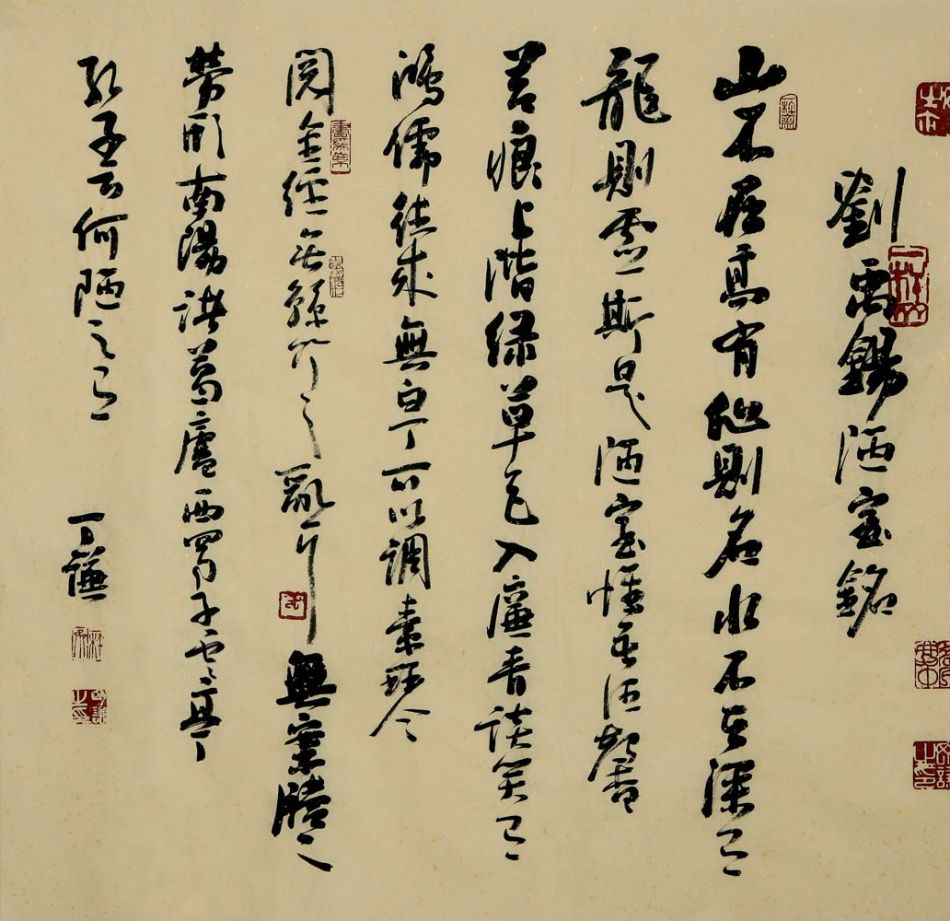 劉禹錫陋室銘
山不在高有仙則名水不在深有
龍則靈斯是陋室惟吾德馨
苔痕上階緑草色入簾青談笑有
鴻儒往來無白丁可以調素琴
閱金經無絲竹之亂耳無案牘之
勞形南陽諸葛廬西蜀子雲亭
孔子云何陋之有
丁謙